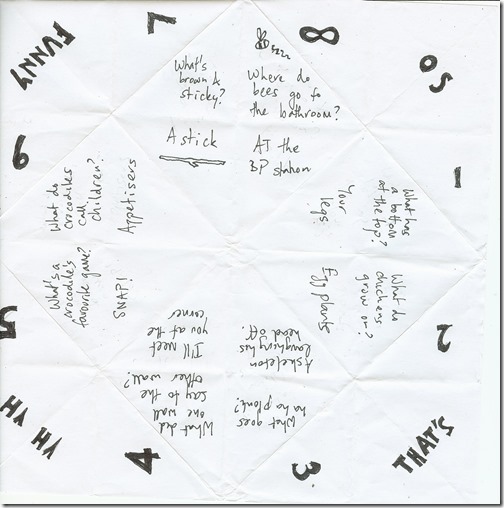 FUNNY
7
8
SO
What's
brown &
sticky?
A stick
zzzz
Where do
bees go to
the bathroom?
AT the
BP station
1
What has
a bottom
at the top?
Your
legs
2
What do
chickens
grow on?
Egg plants
THAT'S
3
What goes
ha ha plonk?
A skeleton
laughing his
head off.
4
What did
one wall
say to the
other wall?
I'll meet
you at the
corner
HA HA
5
What's a
crocodile's
favourite game?
SNAP!
6
What do
crocodiles
call
children?
Appetisers